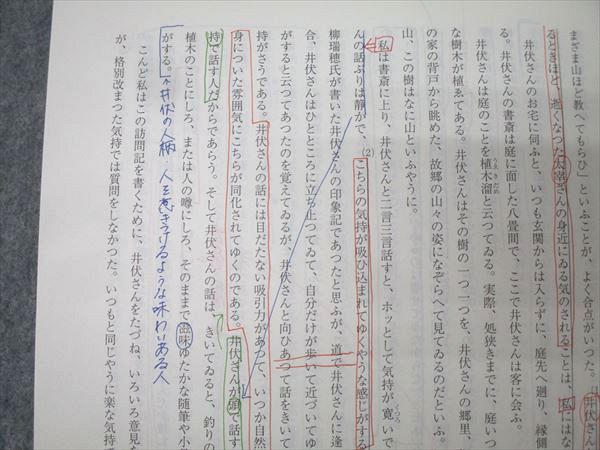 まざま山ほど教へてもらひ」といふことが、よく合点がいつた。
井伏さん
るときほど、逝くなつた太宰さんの身近にゐる気のされることは、私にはな
井伏さんのお宅に伺ふと、いつも玄関からは入らずに、庭先へ廻り、縁側
る。井伏さんの書斎は庭に面した八畳間で、ここで井伏さんは客に会ふ。
井伏さんは庭のことを植木溜と云つてゐる。実際、処狭きまでに、庭いつ
な樹木が植ゑてある。井伏さんはその樹の一つ一つを、井伏さんの郷里、
の家の背戸から眺めた、故郷の山々の姿になぞらへて見てゐるのだといふ。
山、この樹はなに山といふやうに。
私は書斎に上り、井伏さんと二言三言話すと、ホッとして気持が寛いで
んの話ぶりは静かで、(2)こちらの気持が吸ひ込まれてゆくやうな感じがする
柳瑞穂氏が書いた井伏さんの印象記であつたと思ふが、道で井伏さんに逢
合、井伏さんはひとところに立ち止つてゐて、自分だけが歩いて近づいてゆ
がすると云つてあつたのを覚えてゐるが、井伏さんと向ひあつて話をきいて
持がさうである。井伏さんの話には目だたない吸引力があつて、いつか自然
身についた雰囲気にこちらが同化されてゆくのである。井伏さんが頭で話す
持で話す人だからであらう。そして井伏さんの話は、きいてゐると、釣りの
植木のことにしろ、または人の噂にしろ、そのままで滋味ゆたかな随筆や小
がする。
井伏の人柄 人を惹きつけるような味わいある人
こんど私はこの訪問記を書くために、井伏さんをたづね、いろいろ意見を
が、格別改まつた気持では質問をしなかつた。いつもと同じやうに楽な気持